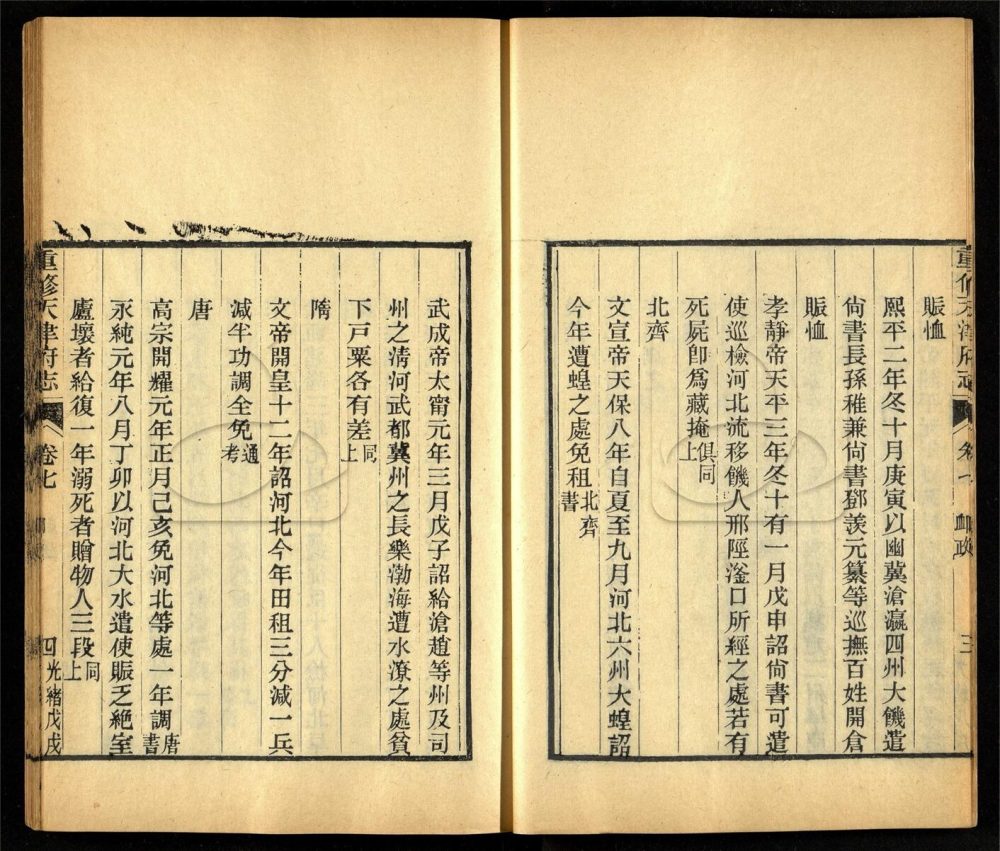 重修天津府志 卷七 卹政 三
賑恤
熙平二年冬十月庚寅以幽冀滄瀛四州大饑遣
尙書長孫稚兼尙書鄧羨元纂等巡撫百姓開倉
賑恤
孝靜帝天平三年冬十有一月戊申詔尙書可遣
使巡檢河北流移饑人邢陘滏口所經之處若有
死屍卽爲藏掩俱同上
北齊
文宣帝天保八年自夏至九月河北六州大蝗詔
今年遭蝗之處免租北齊書
武成帝太甯元年三月戊子詔給滄趙等州及司
州之清河武都冀州之長樂渤海遭水潦之處貧
下戶粟各有差同上
隋
文帝開皇十二年詔河北今年田租三分減一兵
減半功調全免通考
唐
高宗開耀元年正月己亥免河北等處一年調唐書
永純元年八月丁卯以河北大水遣使賑乏絕室
廬壞者給復一年溺死者贈物人三段同上
重修天津府志 卷七 四 光緒戊戌